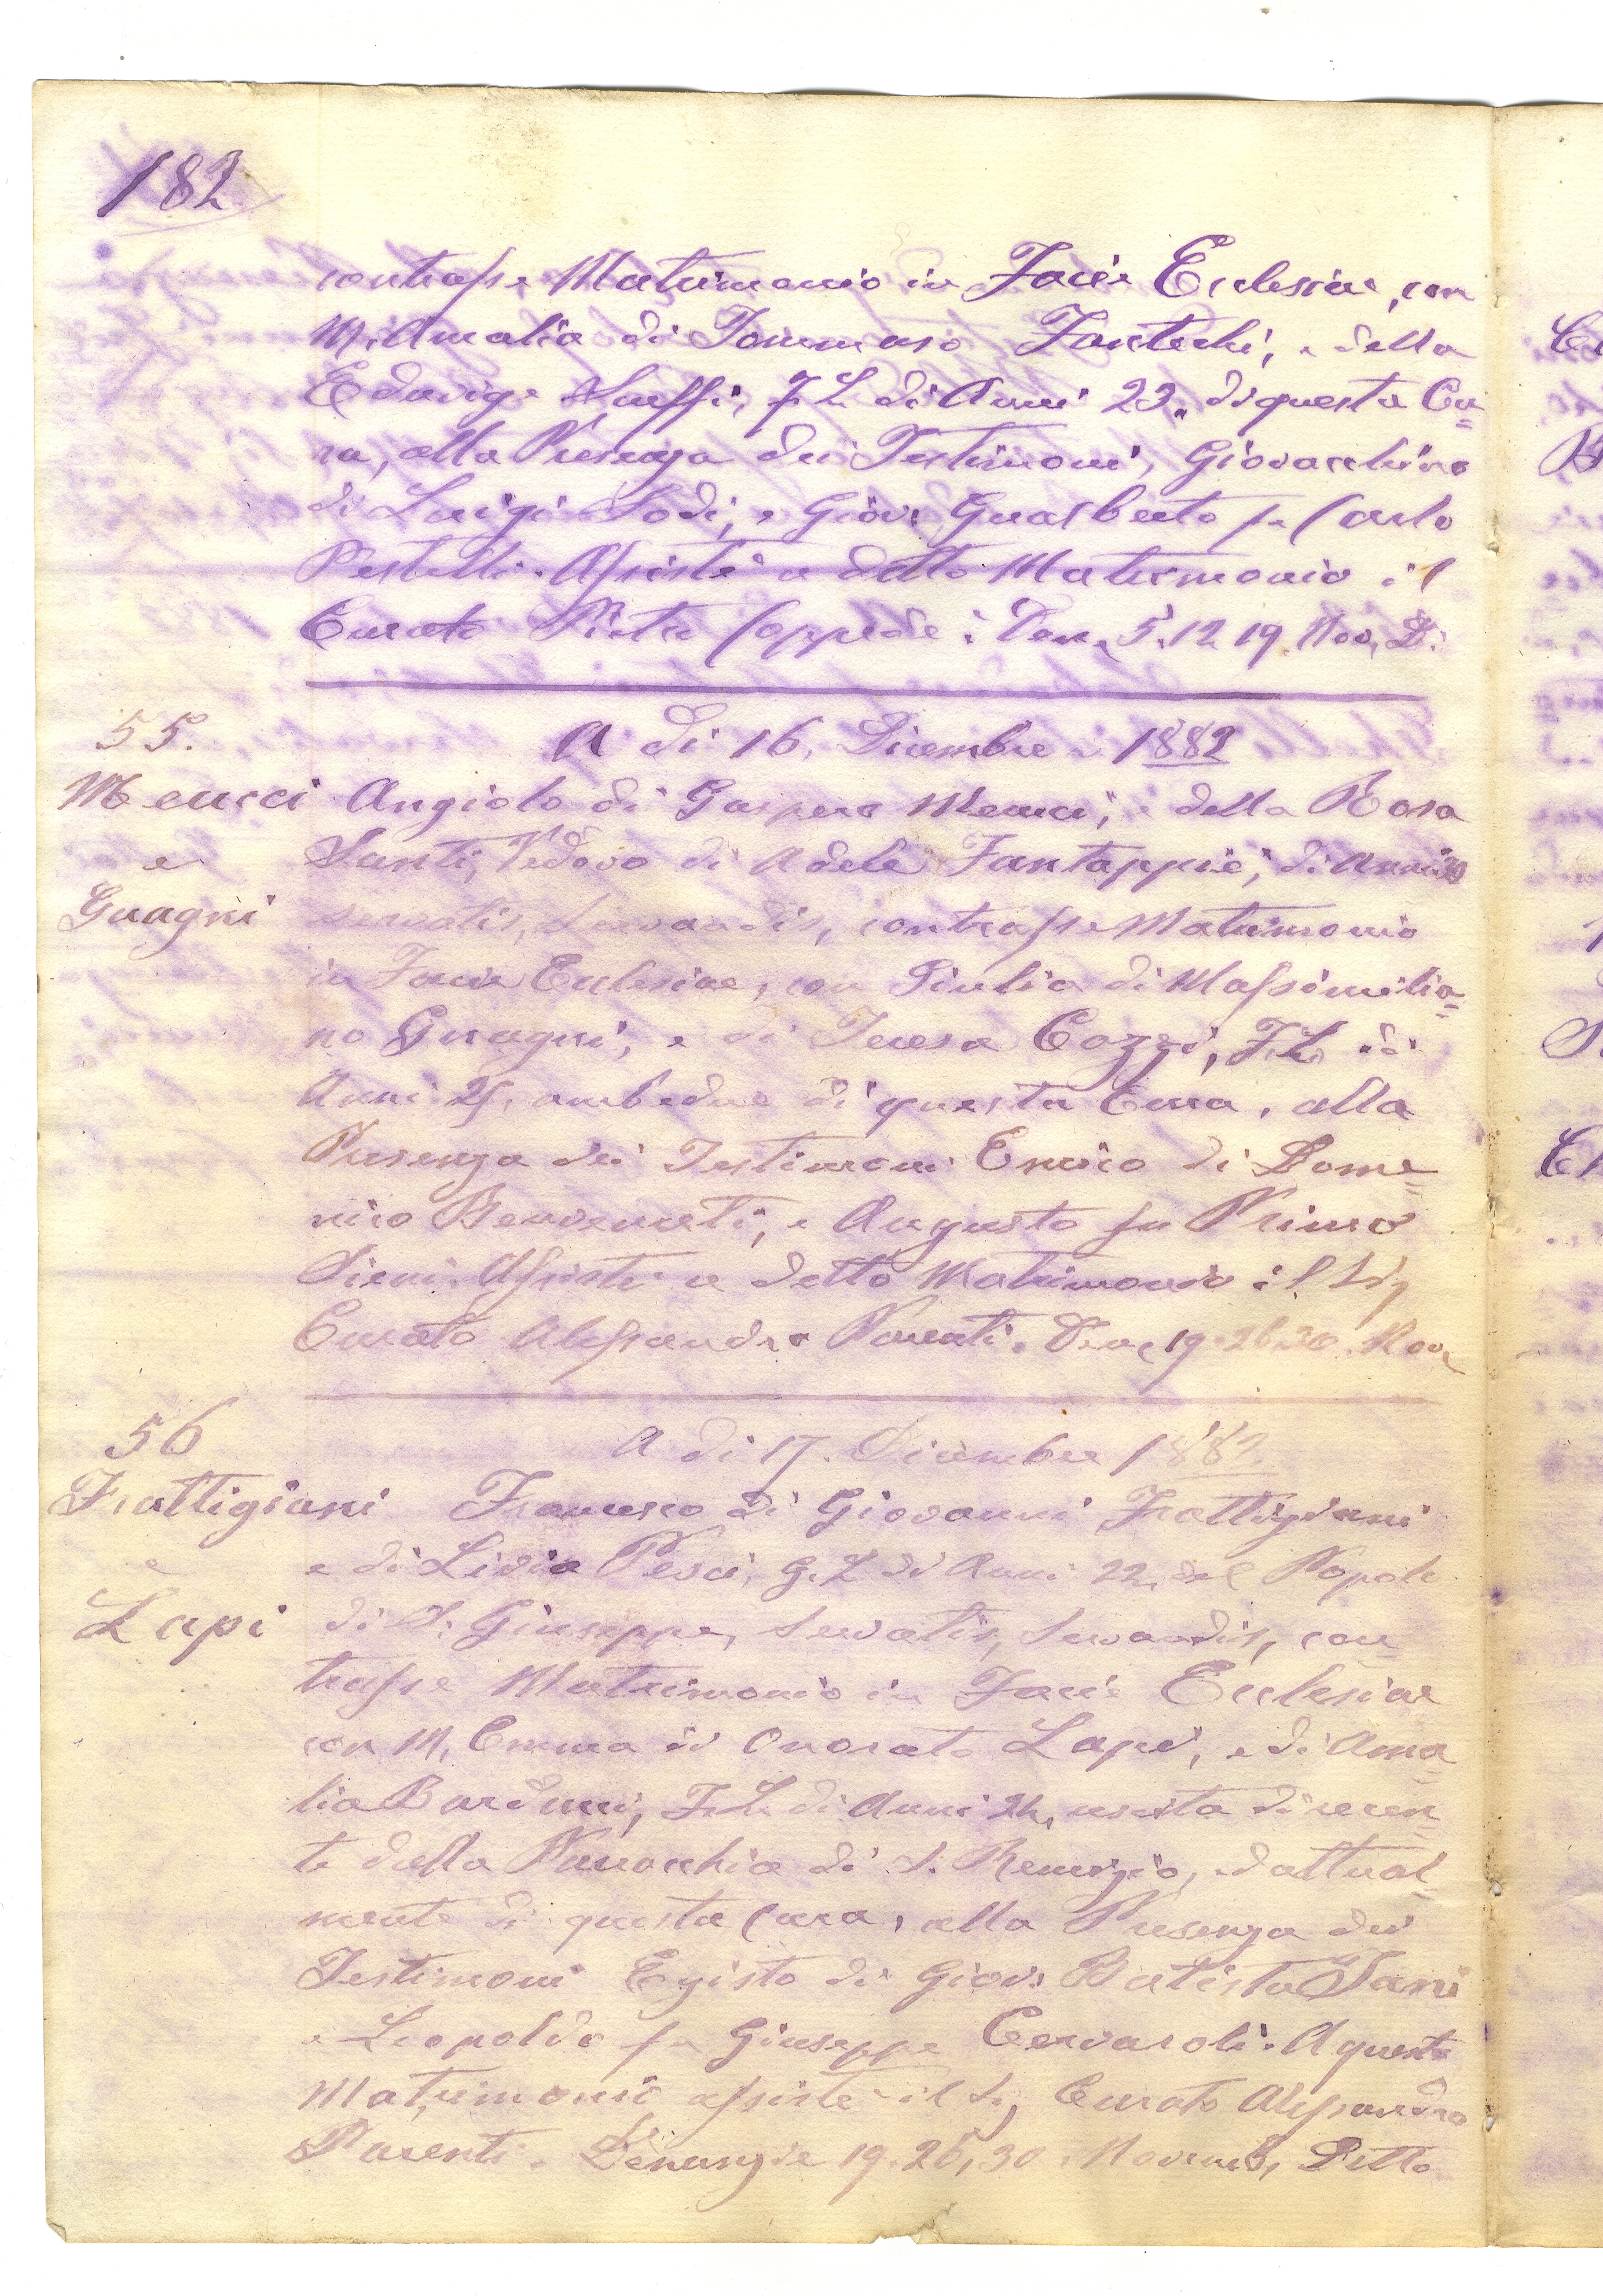 182
contrasse Matrimonio in Facie Ecclesiae, con
M. Amalia di Tommaso Fantechi, e della
Edvige F. L. di Anni 23. di questa Cu=
ra, alla Presenza dei Testimoni, Giovacchino
di Luigi Lodi, e Giov: Gualberto fu Carlo
Pestelli. Assistè a detto Matrimonio il
Curato Pietro Coppede: Den. 5. 12 19. Nov. D:
55. A di 16. Dicembre 1882
Meucci Angiolo di Gaspero Meucci, e della Rosa
e Santi, Vedovo di Adele Fantappiè, di Anni 30
Guagni servatis, Servandis, contrasse Matrimonio
in Facie Ecclesiae, con Giulia di Massimilia=
no Guagni, e di Teresa Cozzi, F. L. di
Anni ambedue di questa Cura, alla
Presenza dei Testimoni Enrico di Dome=
nico Benvenuti, e Augusto fu Primo
Sieni. Assistè a detto Matrimonio il Sig
Curato Alessandro Parenti. Den. 19. 26. 30. Nov.
56 A di 17. Dicembre 1882.
Frattigiani Francesco di Giovanni Frattigiani
e e di Livia Pesci, G. L. di Anni 22, del Popolo
Lapi di S. Giuseppe, Servatis, Servandis, con=
trasse Matrimonio in Facie Ecclesiae
con M. Emma di Onorato Lapi, e di Ama=
lia Barducci, F. L. di Anni 24, uscita di recen=
te dalla Parrocchia di S. Remigio, ed attual=
mente di questa Cura, alla Presenza dei
Testimoni Egisto di Giov: Batista Tani
e Leopoldo fu Giuseppe Cervaroli. A questo
Matrimonio assistè il Sig Curato Alessandro
Parenti. Denunzie 19. 26, 30. Novemb, Detto